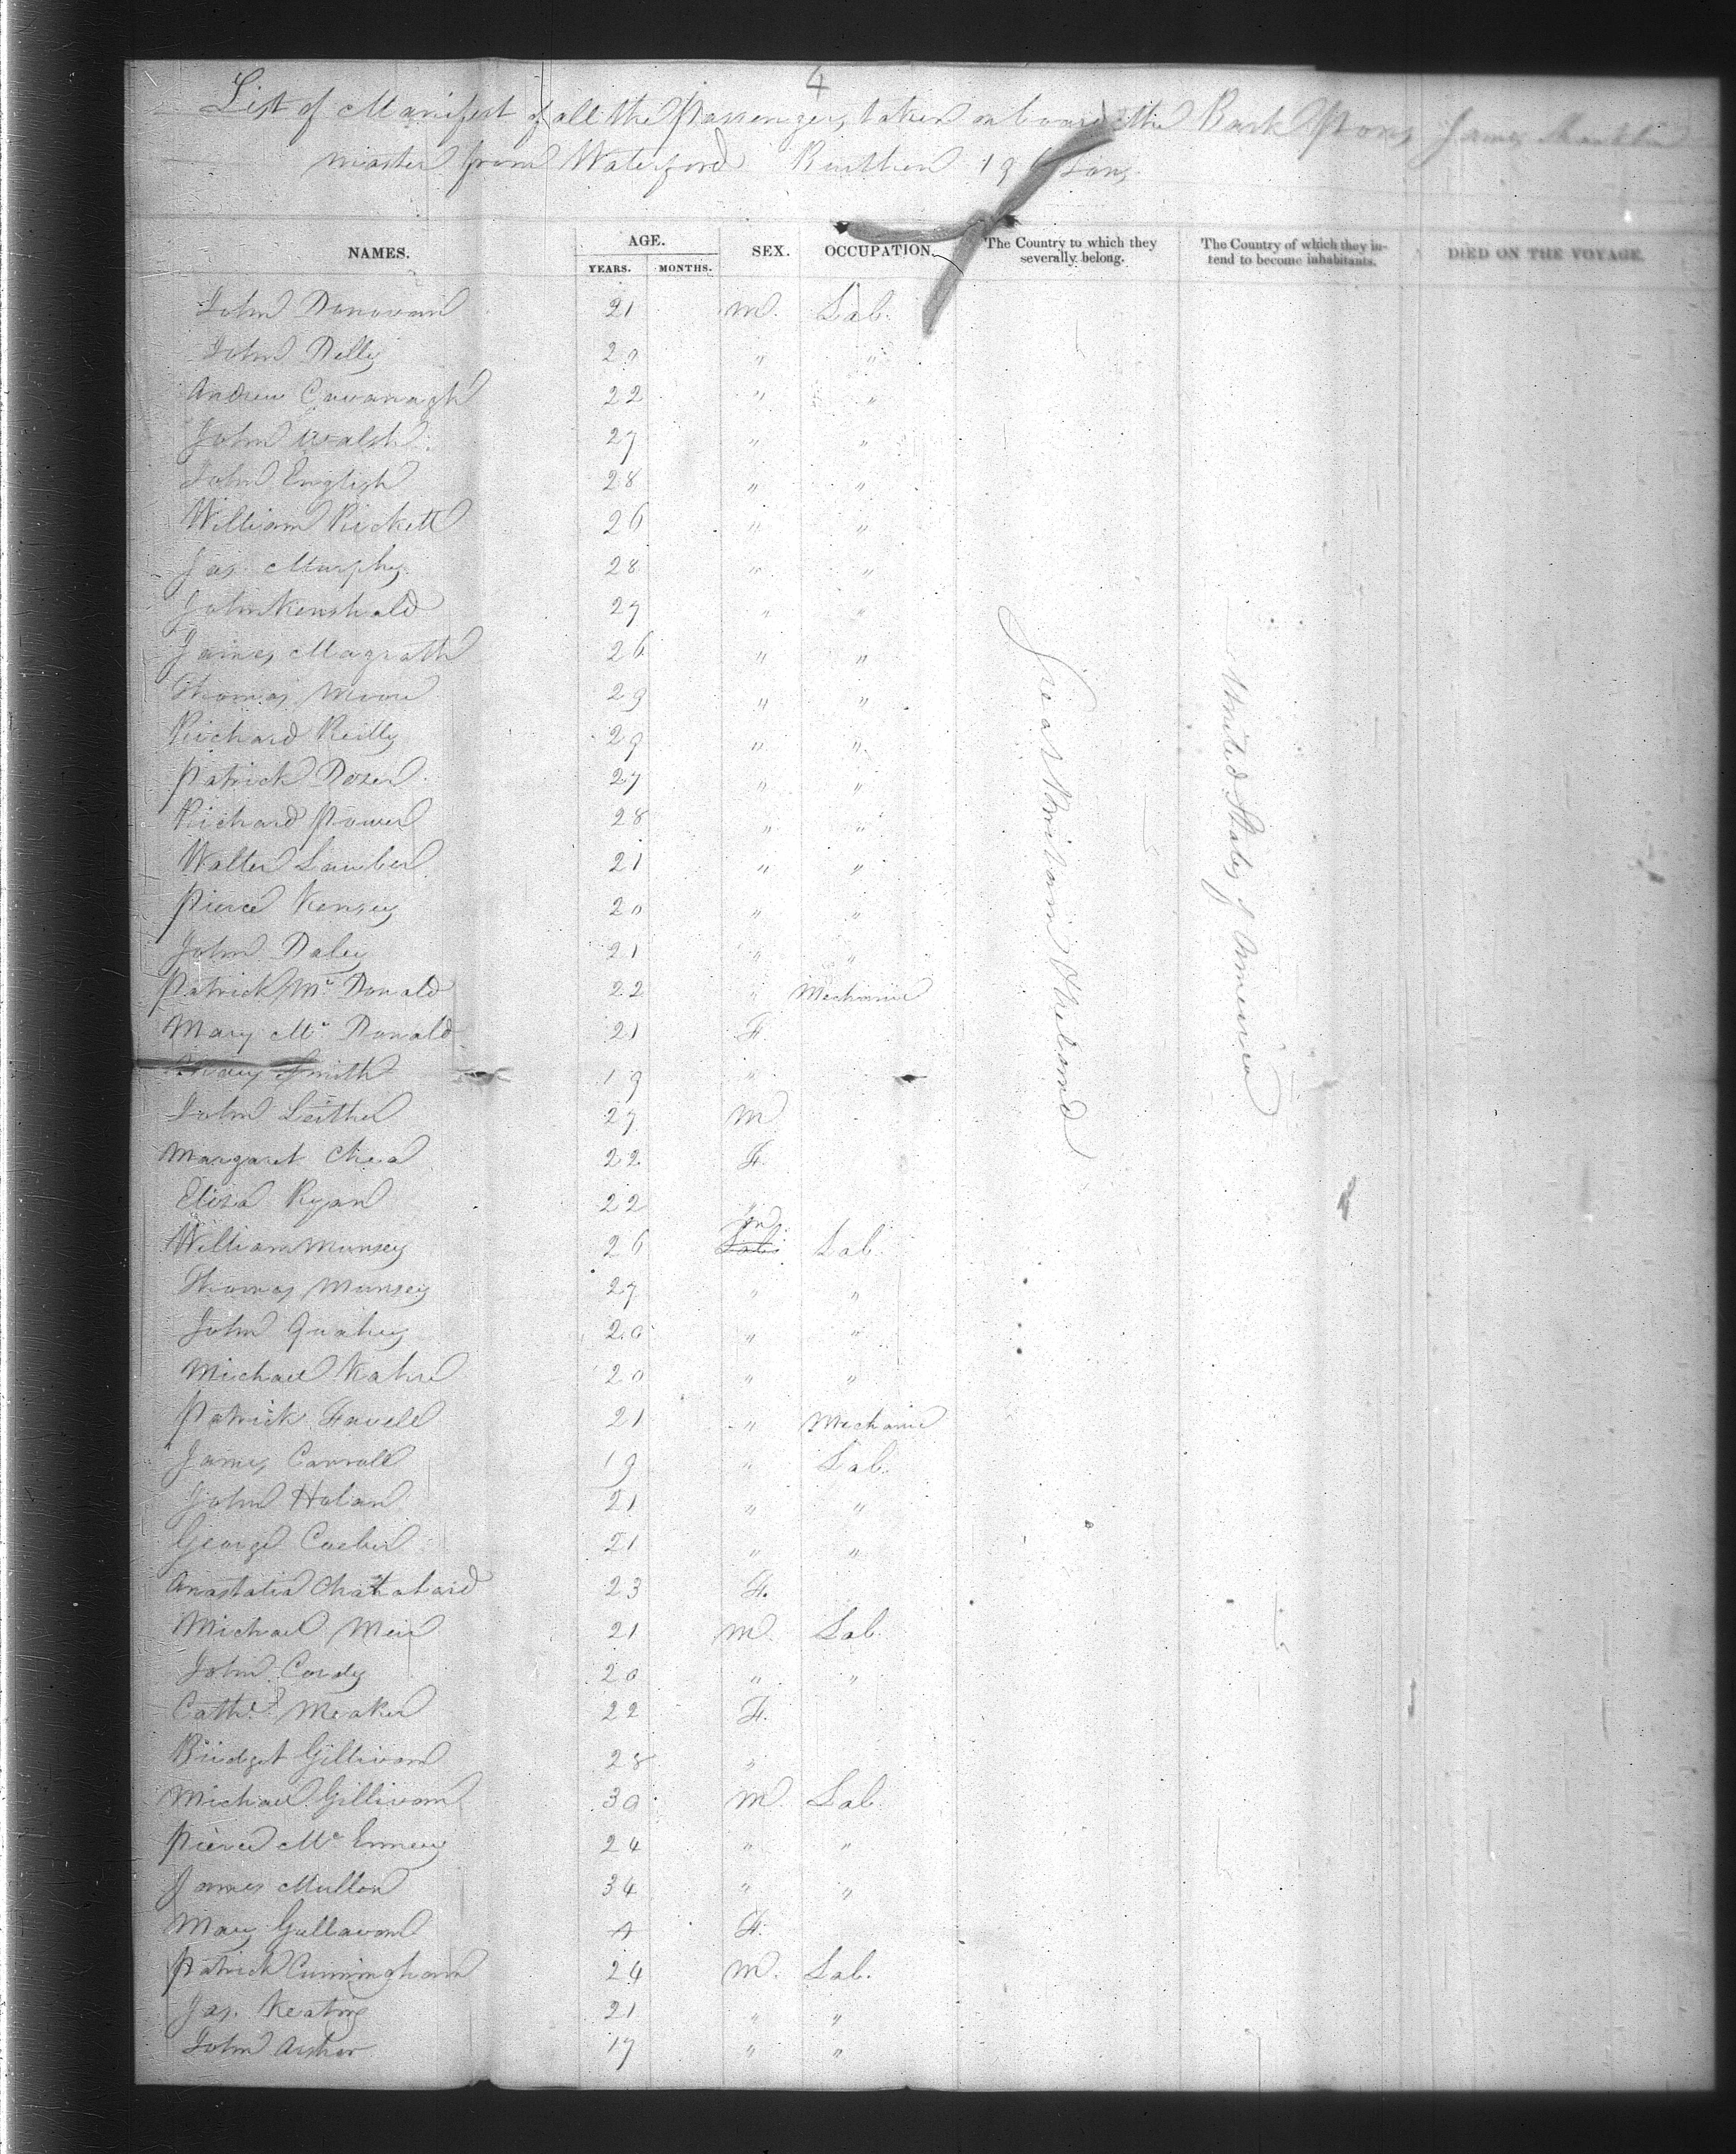 4
List of Manifest of all the Passengers taken on board the Bark James
master from Waterford Burthen tons
NAMES. AGE. SEX. OCCUPATION. The Country to which they severally belong. The Country of which they in-tend to become inhabitants. DIED ON THE VOYAGE.
YEARS. MONTHS.
John Donovan 21 M. Lab.
John Delly 20 " "
Andrew Cavanagh 22 " "
John Walsh 27 " "
John English 28 " "
William Rickett 26 " "
Jas. Murphy 28 " "
John 27 " "
James Magrath 26 " "
Thomas Moore 29 " "
Richard Reilly 29 " "
Patrick 27 " "
Richard Power 28 " "
Walter 21 " "
Pierce Kensey 20 " "
John Daley 21 " "
Patrick Mc Donald 22 " Mechanic
Mary Mc Donald 21 F.
Mary Smith 19 "
John 27 M
Margaret 22 F.
Eliza Ryan 22
William Munsey 26 M Lab.
Thomas Munsey 27 " "
John 20 " "
Michael 20 " "
Patrick Favell 21 " Mechanic
James Carroll 19 " Lab.
John Holan 21 " "
George 21 " "
Anastatia 23 F.
Michael 21 M. Lab.
John Cordy 20 " "
Cathe. Meaker 22 F.
Bridget Gillivan 28 "
Michael Gillivan 30 M Lab.
Pierce Mc Enney 24 " "
James Mullon 34 " "
Mary Gullavan F.
Patrick Cunningham 24 M. Lab.
Jas. Keating 21 " "
John Archer 17 " "
Great Britain & Ireland
United States of America